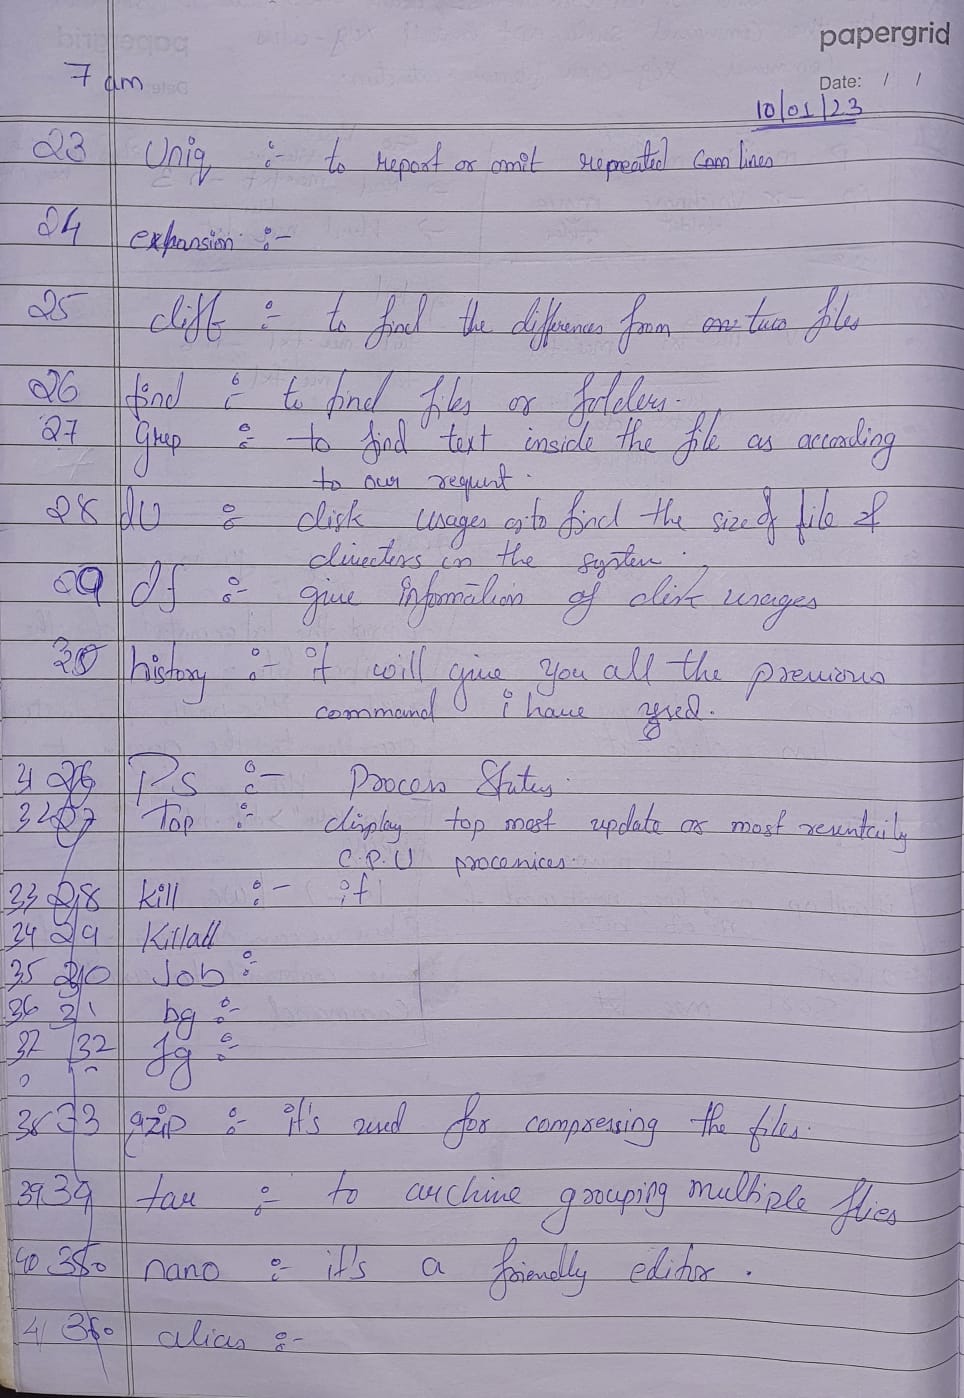 papergrid
7 am
Date: / /
10/01/23
23 Uniq :- to report or omit repreated com lines
24 expansion :-
25 diff :- to find the differences from one two files
26 find :- to find files or folders.
27 grep :- to find text inside the file as according
to our request.
28 du :- disk usages to find the size of file &
directers in the system;
29 df :- give information of disk usages
30 history :- it will give you all the previous
command i have used.
31 26 Ps :- Process Status.
32 27 Top :- display top most update or most resentaily
C.P.U procenices.
33 28 kill :- if
34 29 Killall
35 30 Job :-
36 31 bg :-
37 32 fg :-
38 33 gzip :- it's used for compressing the files.
39 34 tar :- to archive grouping multiple flies
40 35 nano :- it's a friendly editor.
41 36 alias :-